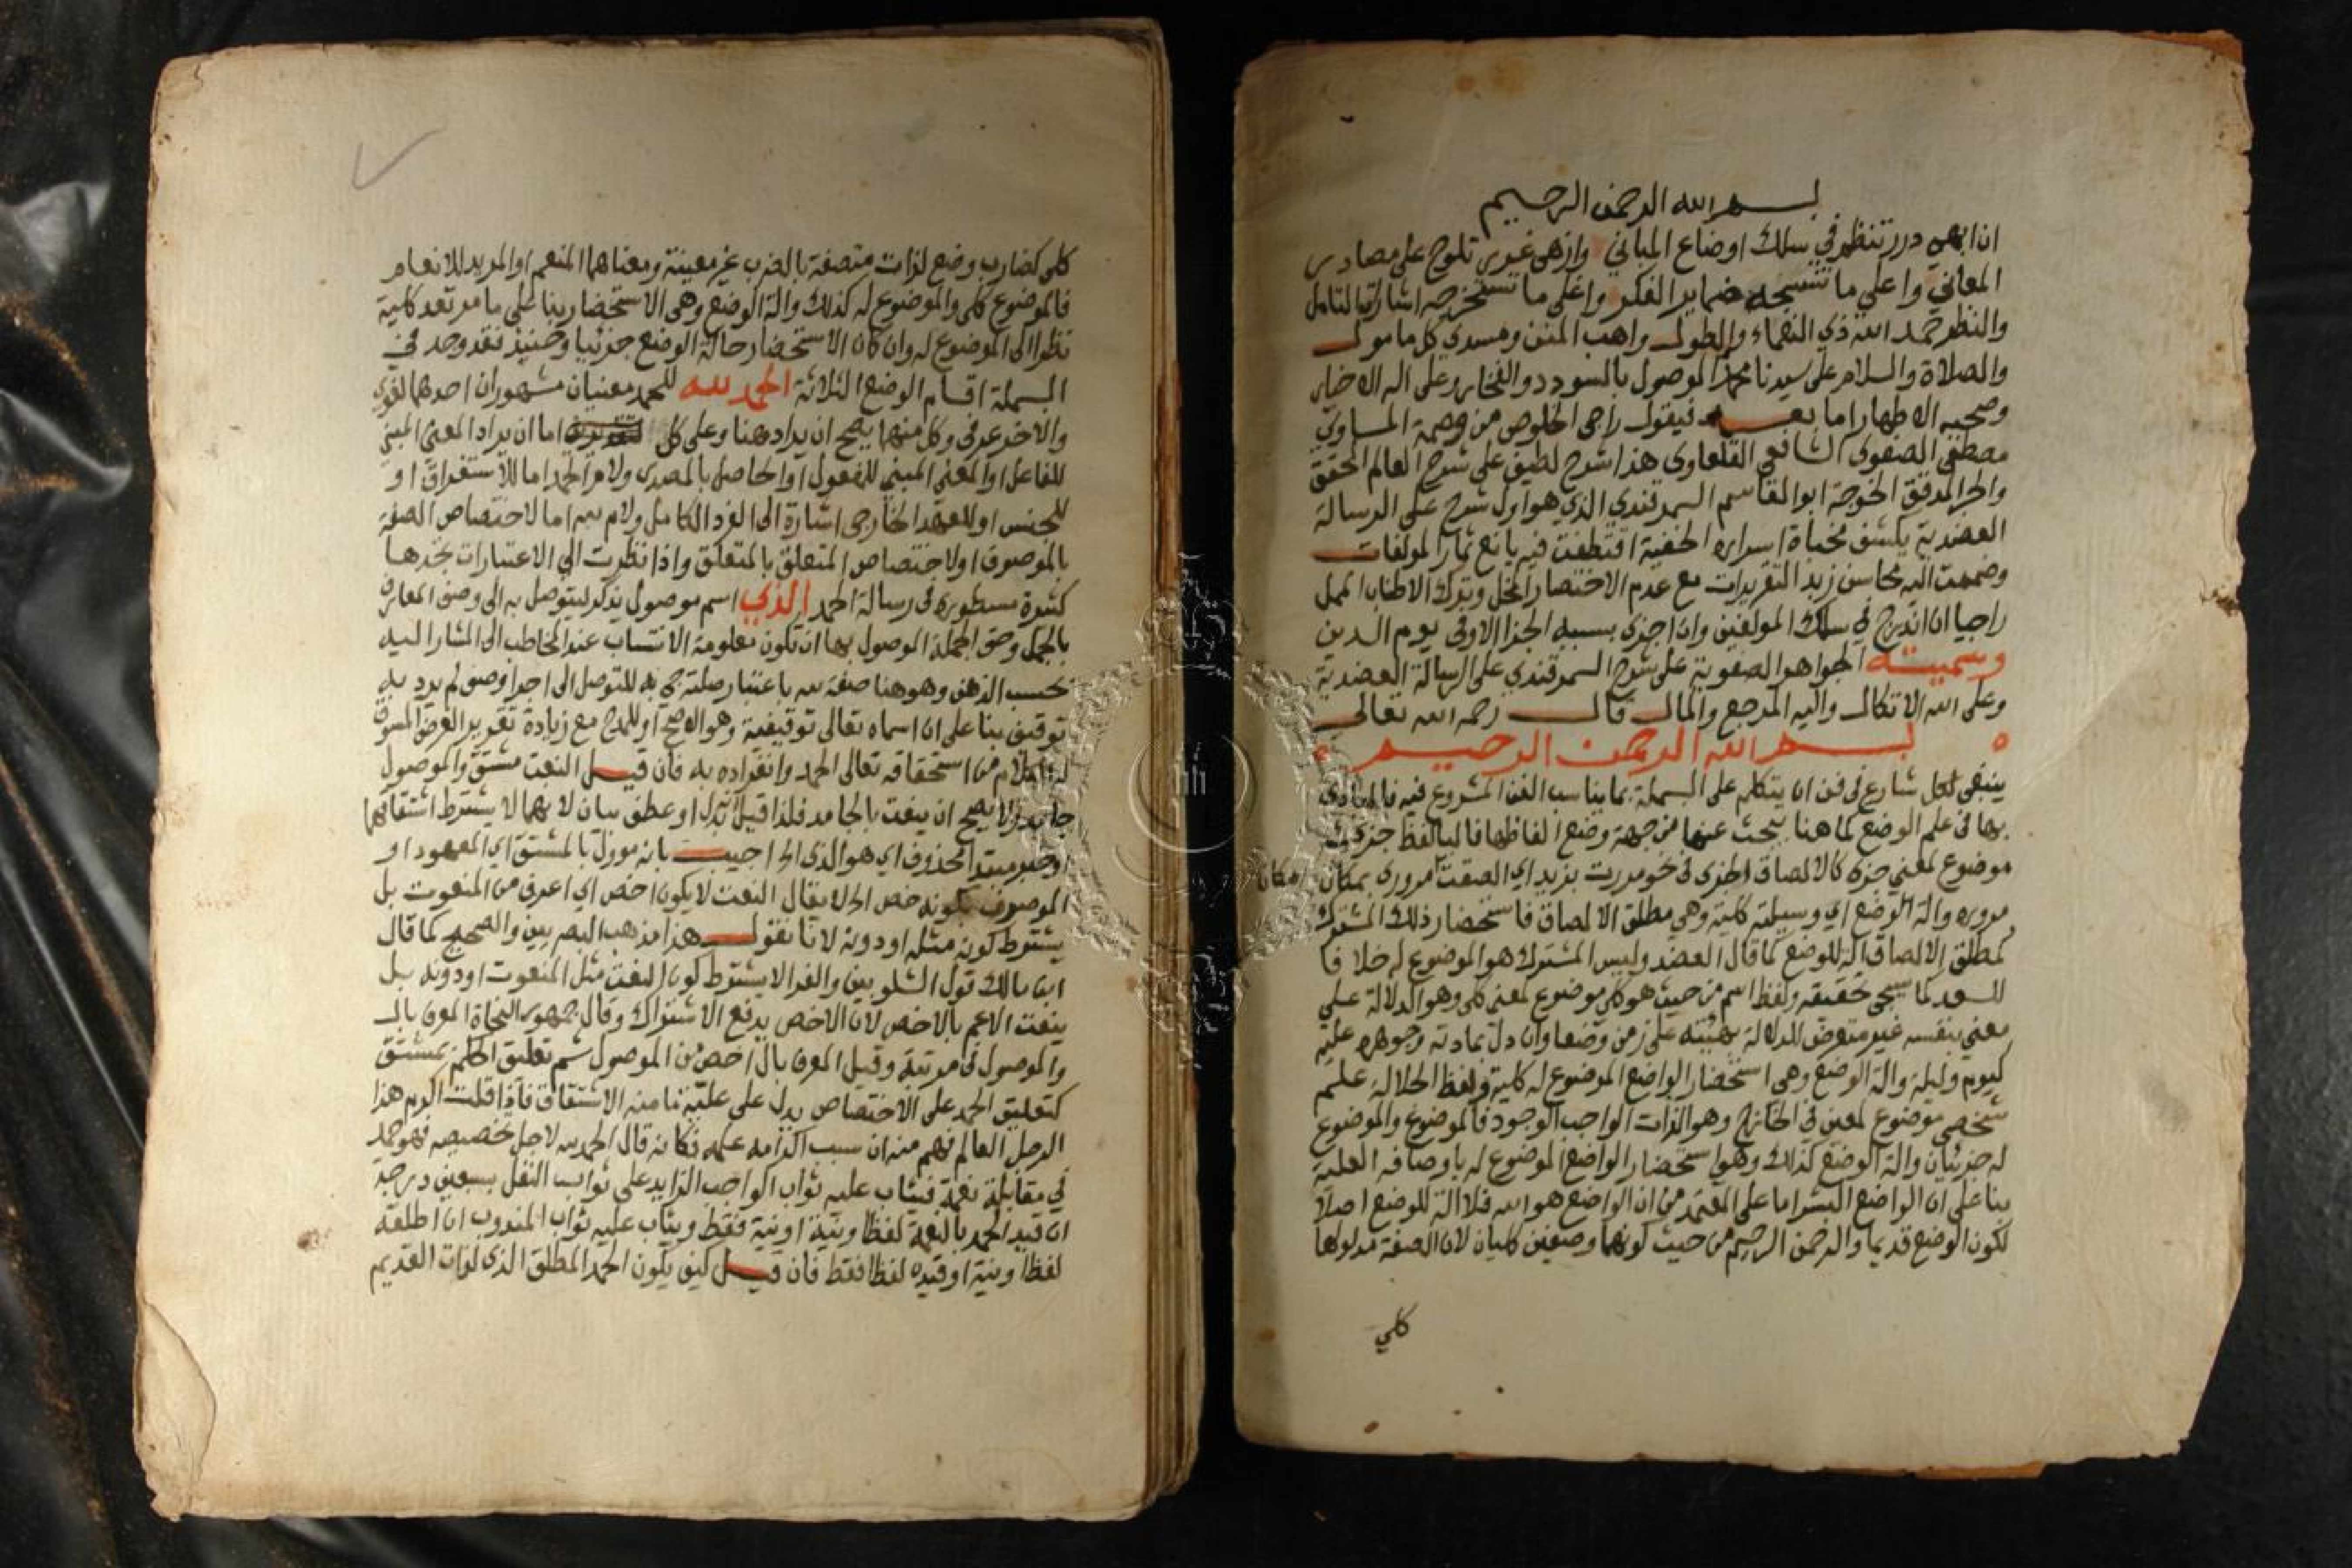 بسم الله الرحمن الرحيم
ان ابهى درر تنظم في سلك اوضاع المباني وازهى غرر تلوح على مصادر
المعاني واعلى ما تنسجه ضماير الفكر واغلى ما تستخرجه اشارة التامل
والنظر حمد الله ذي النعماء والطول واهب المنن ومسدي كل مامول
والصلاة والسلام على سيدنا محمد الموصول بالسودد والفخار وعلى اله الاخيار
وصحبه الاطهار اما بعد فيقول راجي الخلوص من وصمة المساوي
مصطفى الصفوى الشافعي القلعاوى هذا شرح لطيف على شرح العالم المحقق
والحبر المدقق الخوجة ابو القاسم السمرقندى الذي هو اول شرح على الرسالة
العضدية يكشف مخباة اسراره الخفية اقتطفت فيه يانع ثمار المولفات
وضممت اليه محاسن زبد التقريرات مع عدم الاختصار المخل وترك الاطناب الممل
راجيا ان اندرج في سلك المولفين وان اجزى بسببه الجزا الاوفى يوم الدين
وسميته الجواهر الصفوية على شرح السمرقندي على الرسالة العضدية
وعلى الله الاتكال واليه المرجع والمال قال رحمه الله تعالى
بسم الله الرحمن الرحيم
ينبغي لكل شارع في فن ان يتكلم على البسملة بما يناسب الفن المشروع فيه
بها في علم الوضع كما هنا يبحث عنها من جهة وضع الفاظها فالبا لفظ جزئ
موضوع لمعنى جزى كالالصاق الجزى في نحو مررت بزيد اي الصقت مروري بمكان
مروره والة الوضع اي وسيلته كلية وهي مطلق الالصاق فاستحضار ذلك المشترك
كمطلق الالصاق الة للوضع كما قال العضد وليس المشترك هو الموضوع له خلافا
للسعد كما سيجي تحقيقه ولفظ اسم من حيث هو كلي موضوع لمعنى كلى وهو الدلالة على
معنى بنفسه غير متعرض للدلالة بهيئته على زمن وضعا وان دل بمادته وجوهره عليه
كيوم وليلة والة الوضع وهي استحضار الواضع الموضوع له كلية ولفظ الجلالة علم
شخصي موضوع لمعين في الخارج وهو الذات الواجب الوجود فالموضوع والموضوع
له جزئيان والة الوضع كذلك وهو استحضار الواضع الموضوع له باوصافه العلية
بنا على ان الواضع البشر اما على المعتمد من ان الواضع هو الله فلا الة للوضع اصلا
لكون الوضع قديما والرحمن الرحيم من حيث كونهما وصفين كليان لان الصفة مدلولها
كلي
كلى كضارب وضع لذات متصفة بالضرب غير معينة ومعناهما المنعم او المريد للانعام
فالموضوع كلى والموضوع له كذلك والة الوضع وهى الاستحضار بنا على ما مر تعد كلية
نظرا الى الموضوع له وان كان الاستحضار حالة الوضع جزئيا وحينئذ فقد وجد في
البسملة اقسام الوضع الثلاثة الحمد لله للحمد معنيان مشهوران احدهما لغوي
والاخر عرفى وكل منهما يصح ان يراد هنا وعلى كل اما ان يراد المعنى المبني
للفاعل او المعنى المبني للمفعول او الحاصل بالمصدر ولام الحمد اما للاستغراق او
للجنس او للعهد الخارجى اشارة الى الفرد الكامل ولام لله اما لاختصاص الصفة
بالموصوف او لاختصاص المتعلق بالمتعلق واذا نظرت الى الاعتبارات تجدها
كثيرة مسطورة في رسالة الحمد الذي اسم موصول يذكر ليتوصل به الى وصف المعارف
بالجمل وحق الجملة الموصول بها ان تكون معلومة الانتساب عند المخاطب الى المشار اليه
بحسب الذهن وهو هنا صفة لله باعتبار صلته جي به للتوصل الى اجرا وصف لم يرد به
توقيف بنا على ان اسماه تعالى توقيفية وهو الاصح او للمدح مع زيادة تقرير الغرض المسوق
له الكلام من استحقاقه تعالى الحمد وانفراده به فان قيل النعت مشتق والموصول
جامد فلا يصح ان ينعت بالجامد فلذا قيل بدل او عطف بيان لانهما لا يشترط اشتقاقهما
او خبر مبتدا محذوف اي هو الذى الخ اجيب بانه موول بالمشتق اي المعهود او
الموصوف بكونه خص الخ لا يقال النعت لا يكون اخص اي اعرف من المنعوت بل
يشترط كونه مثله او دونه لانا نقول هذا مذهب البصريين والصحيح كما قال
ابن مالك قول الشلوبين والفرا لا يشترط كون النعت مثل المنعوت او دونه بل
ينعت الاعم بالاخص لان الاخص يدفع الاشتراك وقال جمهور النحاة المعرف بال
والموصول في مرتبة وقيل المعرف بال اخص من الموصول ثم تعليق الحكم بمشتق
كتعليق الحمد على الاختصاص يدل على علية ما منه الاشتقاق فاذا قلت اكرم هذا
الرجل العالم فهم منه ان سبب اكرامه علمه فكانه قال الحمد لله لاجل تخصيصه فهو حمد
في مقابلة نعمة فيثاب عليه ثواب الواجب الزايد على ثواب النفل بسبعين درجة
ان قيد الحمد بالنعمة لفظا ونية او نية فقط ويثاب عليه ثواب المندوب ان اطلقه
لفظا ونية او قيده لفظا فقط فان قيل كيف يكون الحمد المطلق الذي لذات القديم